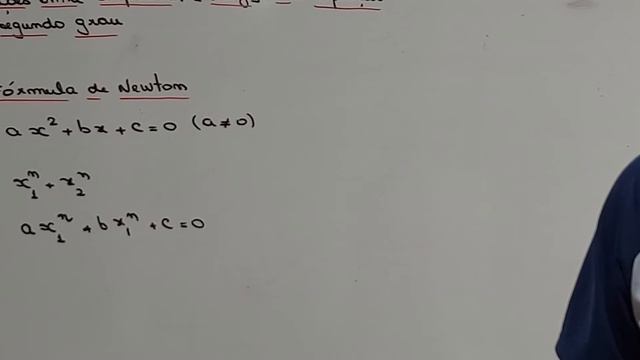 segundo grau
fórmula de Newtom
ax² + bx + c = 0 (a ≠ 0)
x₁ⁿ + x₂ⁿ
ax₁ⁿ + bx₁ⁿ + c = 0